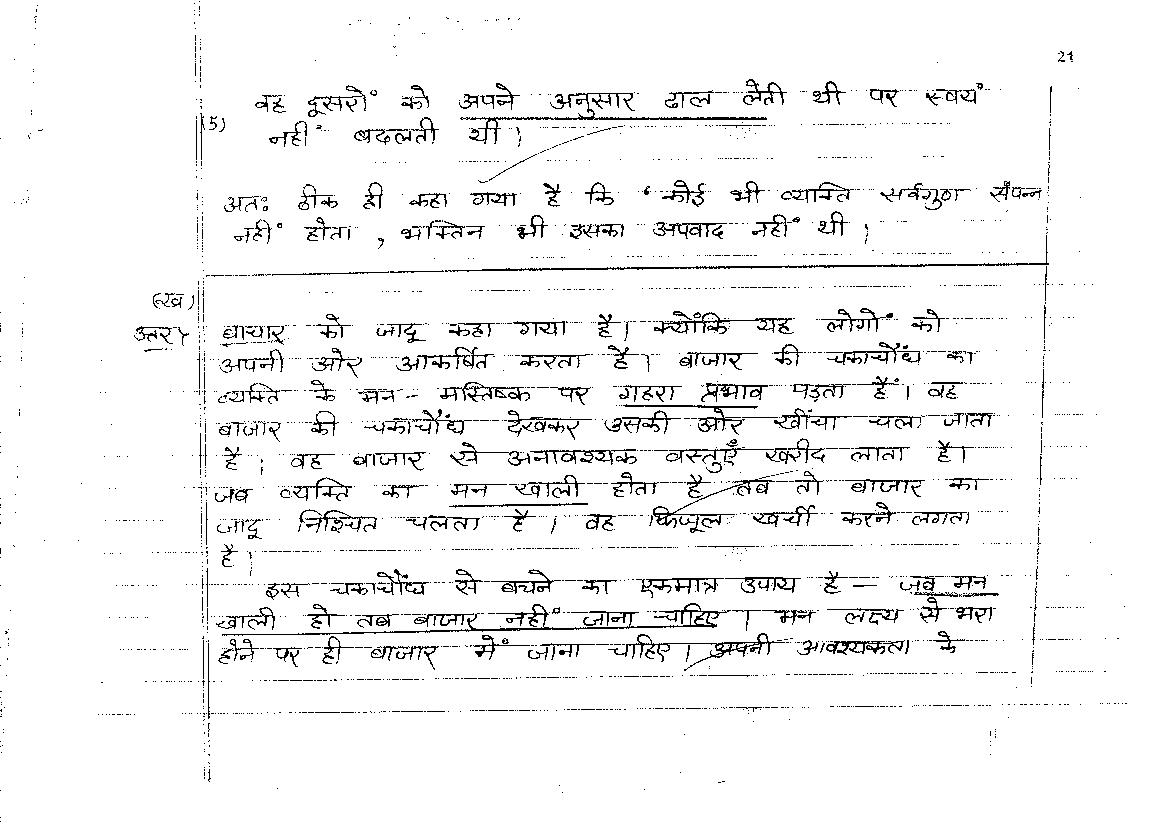 21
वह दूसरों को अपने अनुसार ढाल लेती थी पर स्वयं
(5)
नहीं बदलती थी।
अतः ठीक ही कहा गया है कि 'कोई भी व्यक्ति सर्वगुण संपन्न
नहीं होता , भक्तिन भी इसका अपवाद नहीं थी।
(ख)
उत्तर बाचार को जादू कहा गया है। क्योंकि यह लोगों को
अपनी ओर आकर्षित करता है। बाजार की चकाचौंध का
व्यक्ति के मन - मस्तिष्क पर गहरा प्रभाव पड़ता हैं। वह
बाजार की चकाचौंध देखकर उसकी ओर खींचा चला जाता
है। वह बाजार से अनावश्यक वस्तुएँ खरीद लाता है।
जब व्यक्ति का मन खाली होता है तब तो बाजार का
जादू निश्चित चलता है। वह फिजूल खर्ची करने लगता
है।
इस चकाचौंध से बचने का एकमात्र उपाय है – जब मन
खाली हो तब बाजार नहीं जाना चाहिए। मन लक्ष्य से भरा
होने पर ही बाजार में जाना चाहिए। अपनी आवश्यकता के